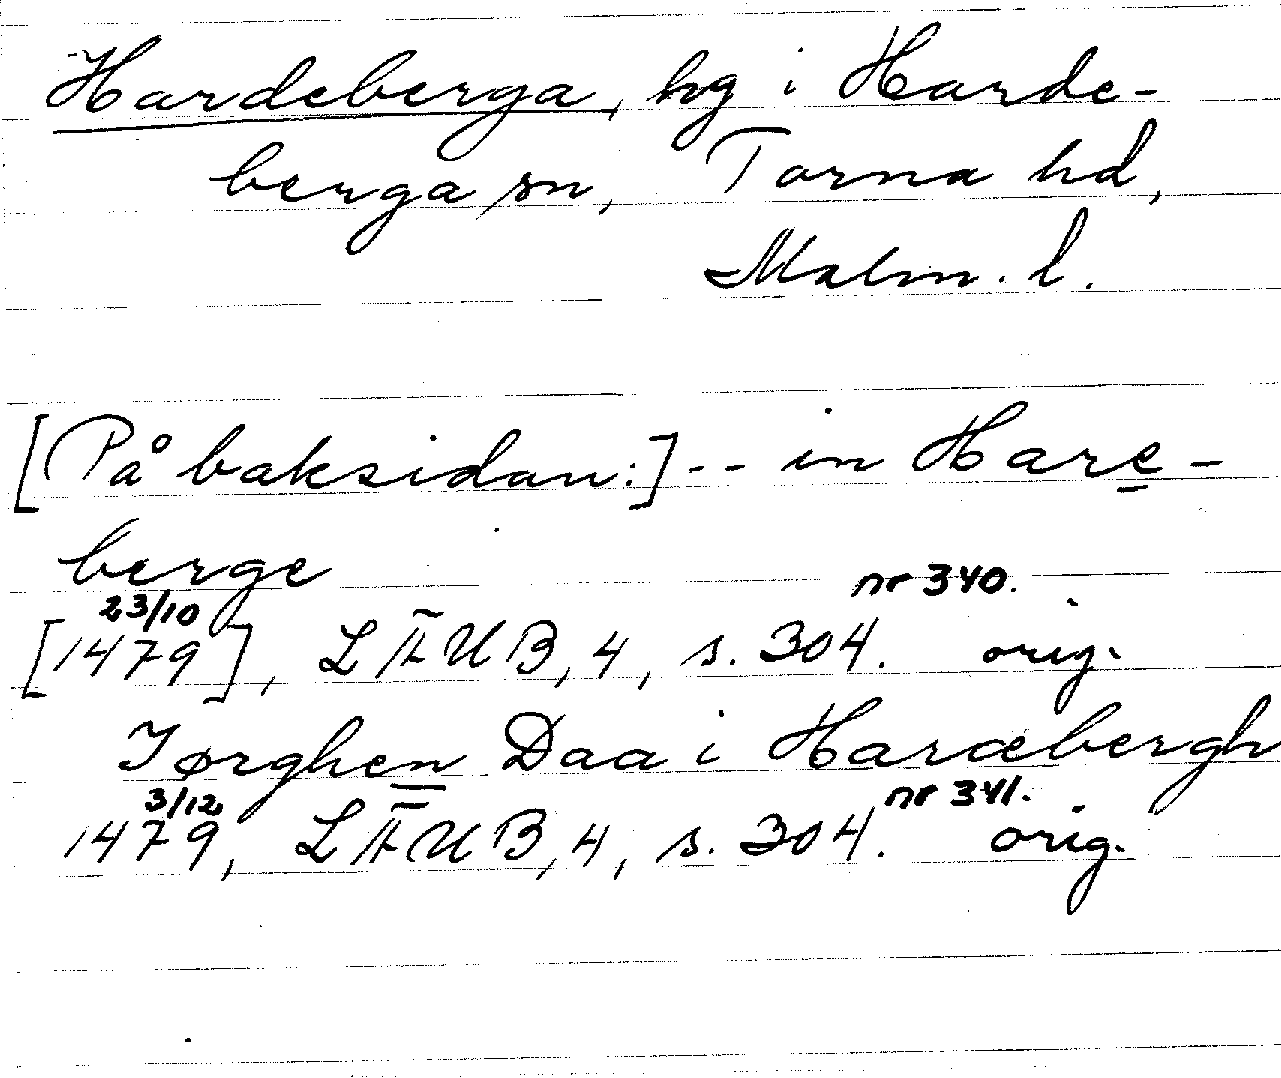 Hardeberga, hg i Harde-
berga sn, Torna hd,
Malm. l.
[På baksidan:] -- in Hare-
berge
23/10 nr 340.
[1479], LÄUB, 4, s. 304. orig.
Iørghen Daa i Haræbergh
3/12 nr 341.
1479, LÄUB, 4, s. 304. orig.